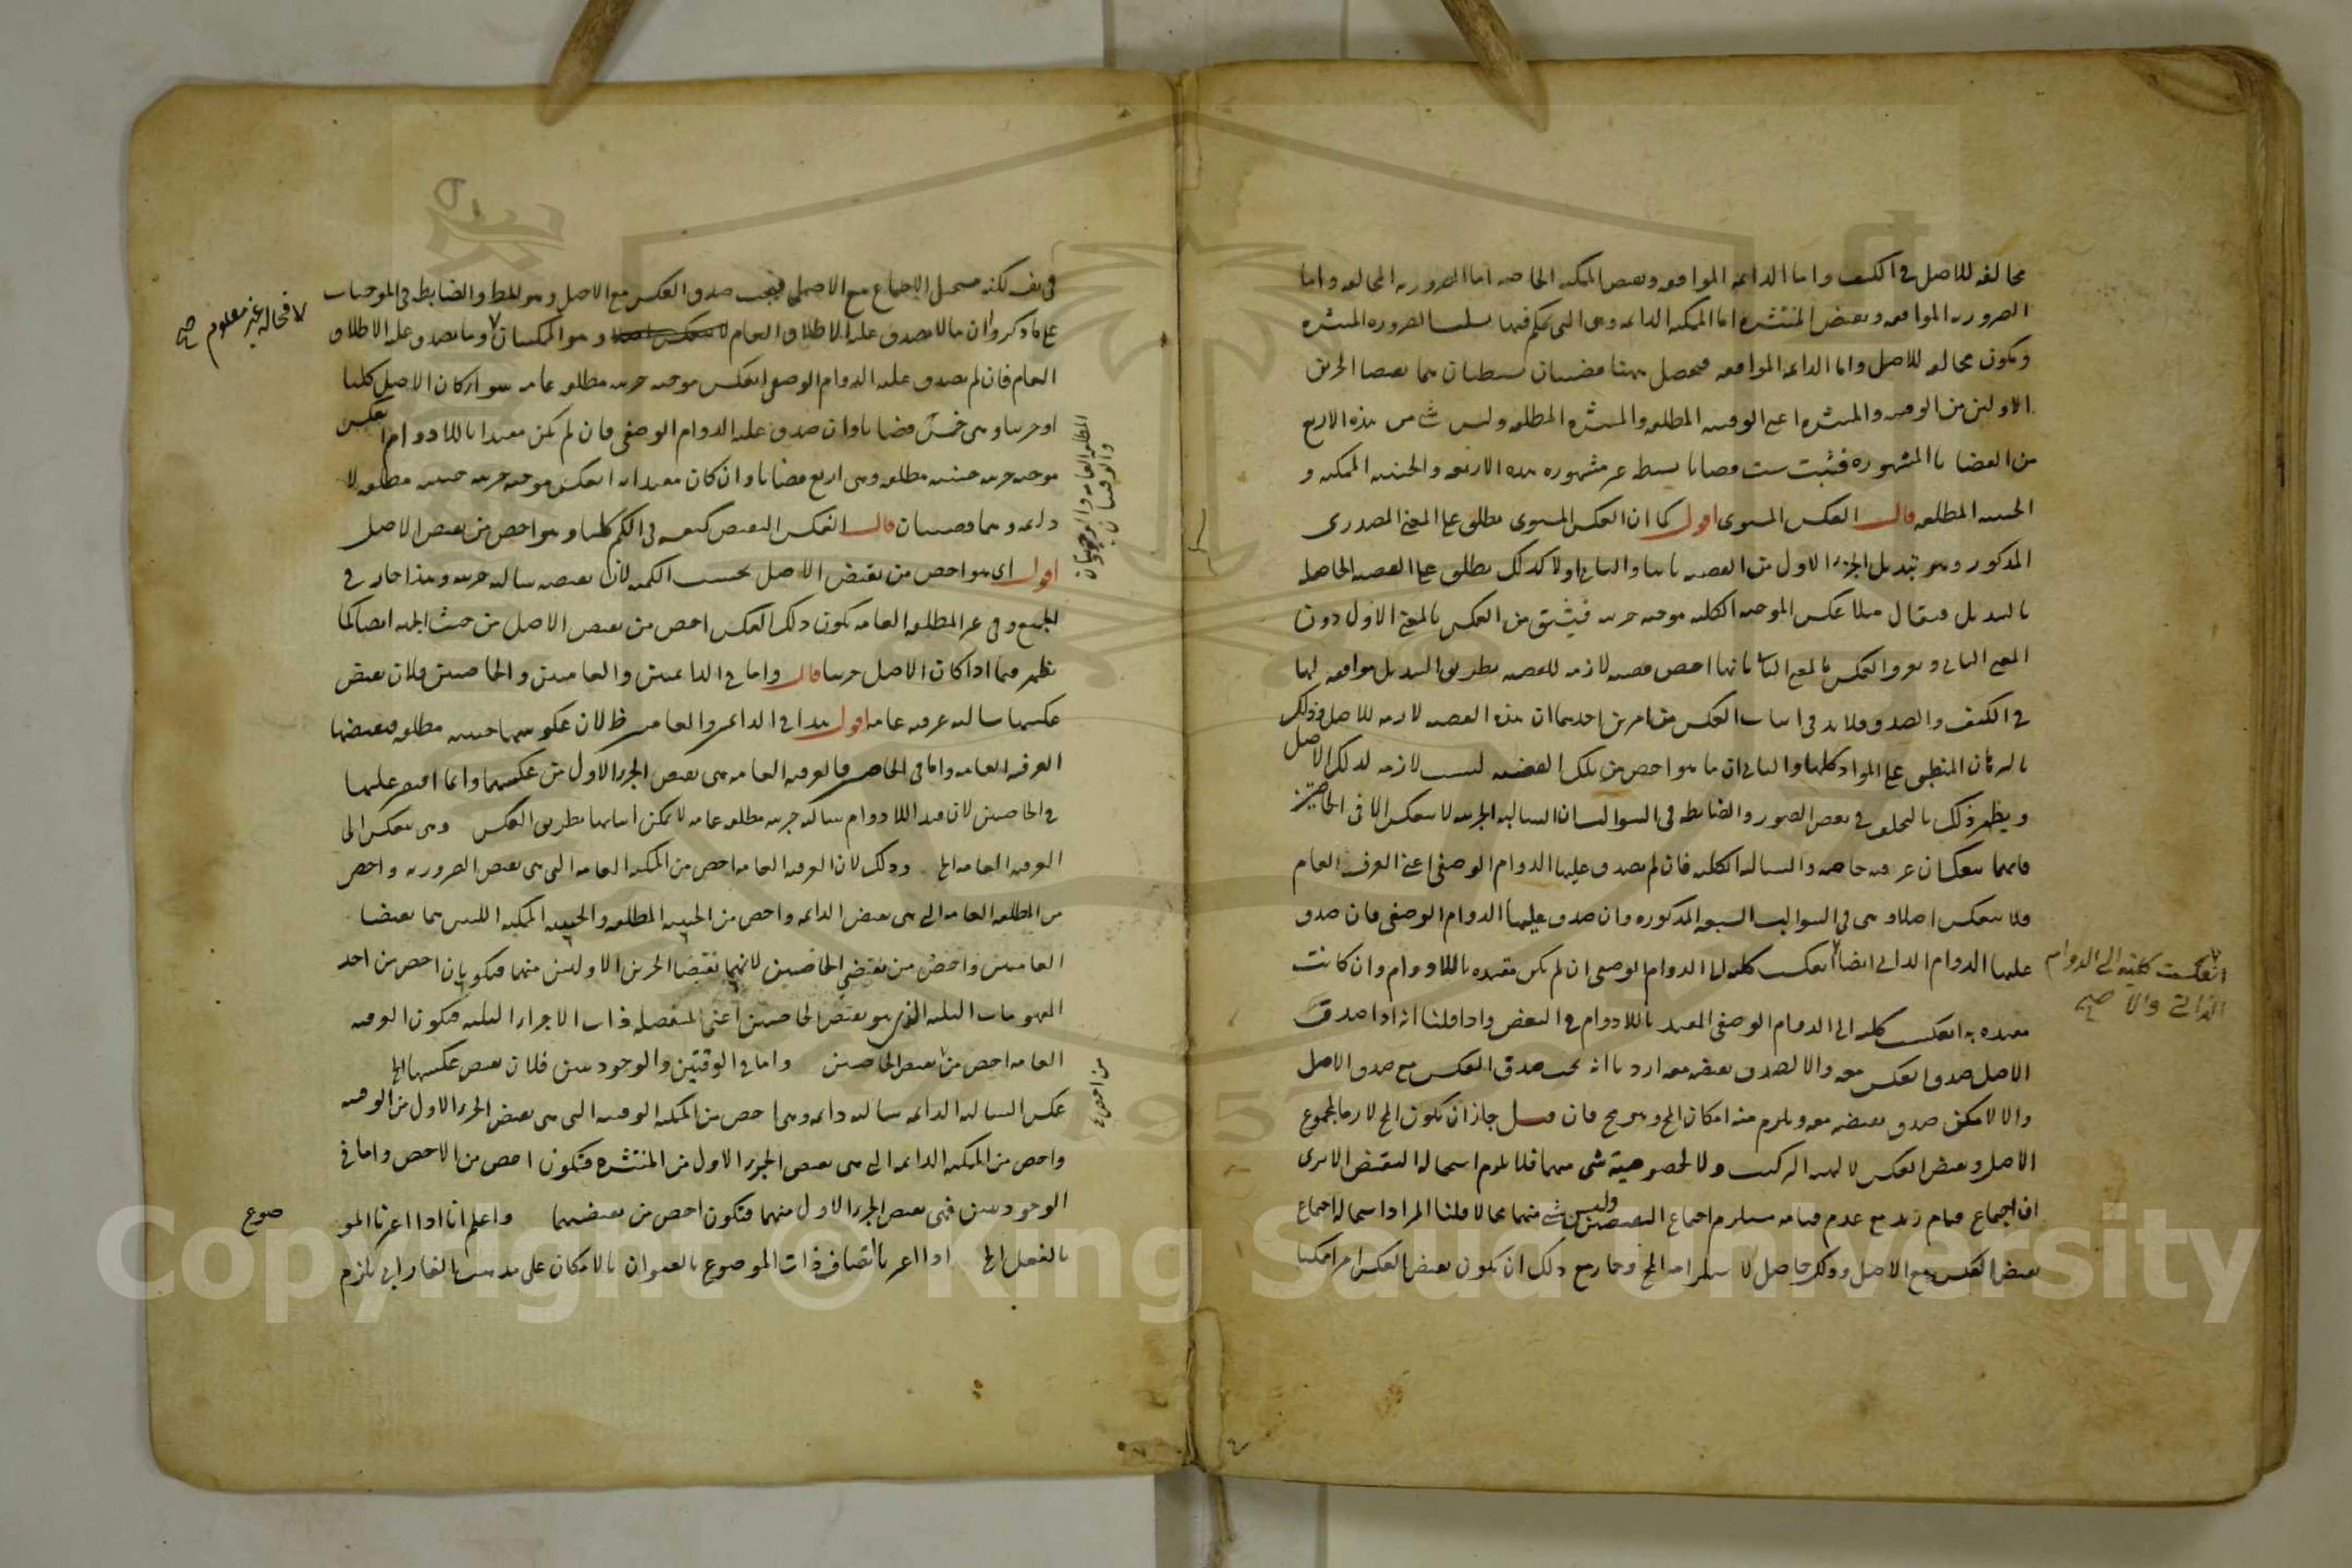 مخالفه للاصل في الكيف واما الدائمه الموافقه ونقيض الممكنه الخاصه اما الضروريه المخالفه واما
الضروريه الموافقه ونقيض المنتشره اما الممكنه الدائمه وهى التى يحكم فيها بسلب الضروره المنتشره
ويكون مخالفه للاصل واما الدائمه الموافقه فحصل ههنا قضيتان بسيطتان هما نقيضا الجزئين
الاولين من الوقتيه والمنتشره اعنى الوقتيه المطلقه والمنتشره المطلقه وليس شئ من هذه الاربع
من القضايا المشهوره فثبت ست قضايا بسيطه غير مشهوره هذه الاربعه والحينيه الممكنه و
الحينيه المطلقه قال العكس المستوى اقول كما ان العكس المستوى يطلق على المعنى المصدرى
المذكور وهو تبديل الجزء الاول من القضيه ثانيا والثانى اولا كذلك يطلق على القضيه الحاصله
بالتبديل فيقال مثلا عكس الموجبه الكليه موجبه جزئيه فيشتق من العكس بالمعنى الاول دون
المعنى الثانى ويعرف العكس بالمعنى الثانى بانها اخص قضيه لازمه للقضيه بطريق التبديل موافقه لها
في الكيف والصدق فلابد في اثبات العكس من امرين احدهما ان هذه القضيه لازمه للاصل وذلك
بالبرهان المنطبق على المواد كلها والثانى ان ما هو اخص من تلك القضيه ليست لازمه لذلك الاصل
ويظهر ذلك بالتخلف في بعض الصور والضابطه فى السوالب ان السالبه الجزئيه لا ينعكس الا فى الخاصتين
فانهما ينعكسان عرفيه خاصه والسالبه الكليه فان لم يصدق عليها الدوام الوصفى اعنى العرفى العام
فلا ينعكس اصلا وهى فى السوالب السبعه المذكوره وان صدق عليها الدوام الوصفى فان صدق
عليها الدوام الذاتى ايضا انعكست كليه الى الدوام الوصفى ان لم يكن مقيده باللادوام وان كانت
انعكست كليه الى الدوام
الذاتى والا صح
مقيده به انعكست كليه الى الدوام الوصفى المقيد باللادوام فى البعض واذا قلنا انه اذا صدق
الاصل صدق العكس معه والا لصدق نقيضه معه اردنا انه يجب صدق العكس مع صدق الاصل
والا لامكن صدق نقيضه معه ويلزم منه امكان المح وهو مح فان قيل جاز ان يكون المح لازما لمجموع
الاصل ونقيض العكس لا لهذا التركيب ولا لخصوصية شئ منهما فلا يلزم استحالة النقيض الا يرى
ان اجتماع قيام زيد مع عدم قيامه يستلزم اجتماع النقيضين وليس شئ منهما محالا قلنا المراد استحالة اجتماع
نقيض العكس مع الاصل وذلك حاصل لاستلزامه المح وجاز مع ذلك ان يكون نقيض العكس امرا ممكنا
فى نفسه لكنه مستحيل الاجتماع مع الاصل فيجب صدق العكس مع الاصل وهو المط والضابطه فى الموجبات
على ما ذكروا ان ما لا يصدق عليه الاطلاق العام لا وهو الممكنتان وما يصدق عليه الاطلاق
لا فحاله غير معلوم صح
العام فان لم يصدق عليه الدوام الوصفى انعكس موجبه جزئيه مطلقه عامه سواء كان الاصل كليا
او جزئيا وهى خمس قضايا وان صدق عليه الدوام الوصفى فان لم يكن مقيدا باللادوام انعكس
المطلقه العامه والوجوديتان
والوقتيتان
موجبه جزئيه حينيه مطلقه وهى اربع قضايا وان كان مقيدا به انعكس موجبه جزئيه حينيه مطلقه لا
دائمه وهما قضيتان قال انعكس النقيض كنفسه فى الكم كليا وهو اخص من نقيض الاصل
اقول اى هو اخص من نقيض الاصل بحسب الكميه لان نقيضه سالبه جزئيه وهذا جار فى
الجميع وفى غير المطلقه العامه يكون ذلك العكس اخص من نقيض الاصل من حيث الجهه ايضا كما
يظهر فيما اذا كان الاصل جزئيا قال واما فى الدائمتين والعامتين والخاصتين فلان نقيض
عكسها سالبه عرفيه عامه اقول هذا فى الدائمتين والعامتين ظ لان عكوسها حينيه مطلقه فنقيضها
العرفيه العامه واما فى الخاصتين فالعرفيه العامه هى نقيض الجزء الاول من عكسهما وانما اقتصر عليها
فى الخاصتين لان قيد اللادوام سالبه جزئيه مطلقه عامه لا يمكن اثباتها بطريق العكس وهى تنعكس الى
العرفيه العامه الخ وذلك لان العرفيه العامه اخص من الممكنه العامه التى هى نقيض الضروريه واخص
من المطلقه العامه التى هى نقيض الدائمه واخص من الحينيه المطلقه والحينيه الممكنه اللتين هما نقيضا
العامتين واخص من نقيضى الخاصتين لانهما نقيضا الجزئين الاولين منهما فيكونان اخص من احد
المفهومات الثلثه الذى هو نقيض الخاصتين اعنى المنفصله ذات الاجزاء الثلثه فيكون العرفيه
العامه اخص من نقيض الخاصتين واما فى الوقتيتين والوجوديتين فلان نقيض عكسها الخ
عكس السالبه الدائمه سالبه دائمه وهى اخص من الممكنه الوقتيه التى هى نقيض الجزء الاول من الوقتيه
من اخص
واخص من الممكنه الدائمه التى هى نقيض الجزء الاول من المنتشره فتكون اخص من الاخص واما فى
الوجوديتين فهى نقيض الجزء الاول منهما فتكون اخص من نقيضهما واعلم انا اذا اعتبرنا المو
ضوع
بالفعل الخ اذا اعتبر اتصاف ذات الموضوع بالعنوان بالامكان على مذهب الفارابى يلزم
Copyright © King Saud University
1957